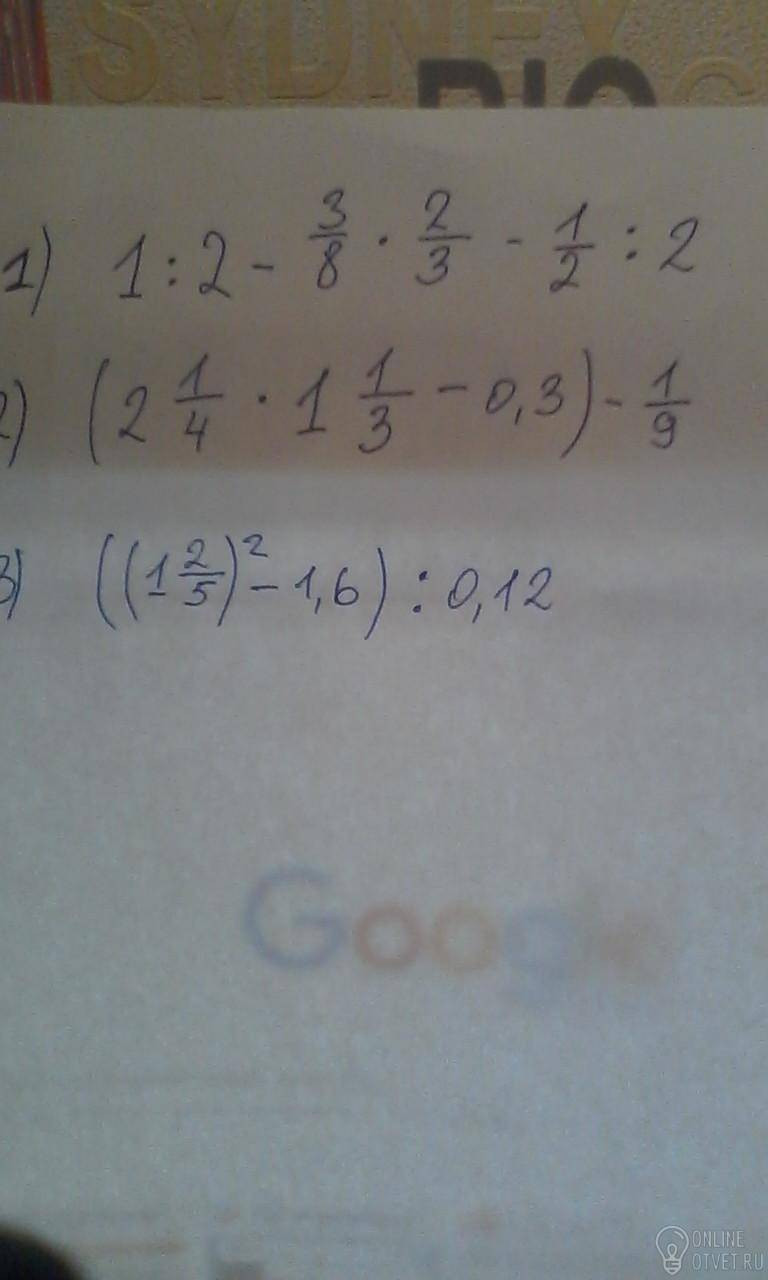 SYDNEY
1) 1 : 2 - 3/8 · 2/3 - 1/2 : 2
2) (2 1/4 · 1 1/3 - 0,3) - 1/9
3) ((1 2/5)² - 1,6) : 0,12
Google
ONLINE
OTVET.RU